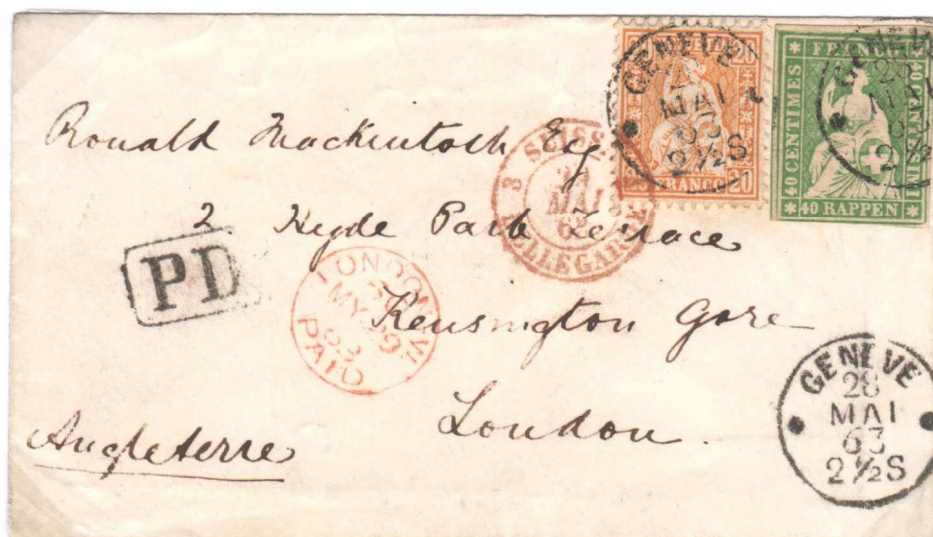 GENEVE
28
MAI
63
2½S
20
FRANCO
20
40 CENTIMES
FRANCO
40 RAPPEN
GENEVE
28
MAI
63
2½S
Ronald Mackintosh Esq
3 SUISSE
MAI
63
BELLEGARDE
2 Hyde Park Terrace
PD
LONDON
MY 29
63
PAID
Kensington Gore
London.
Angleterre
GENEVE
28
MAI
63
2½S